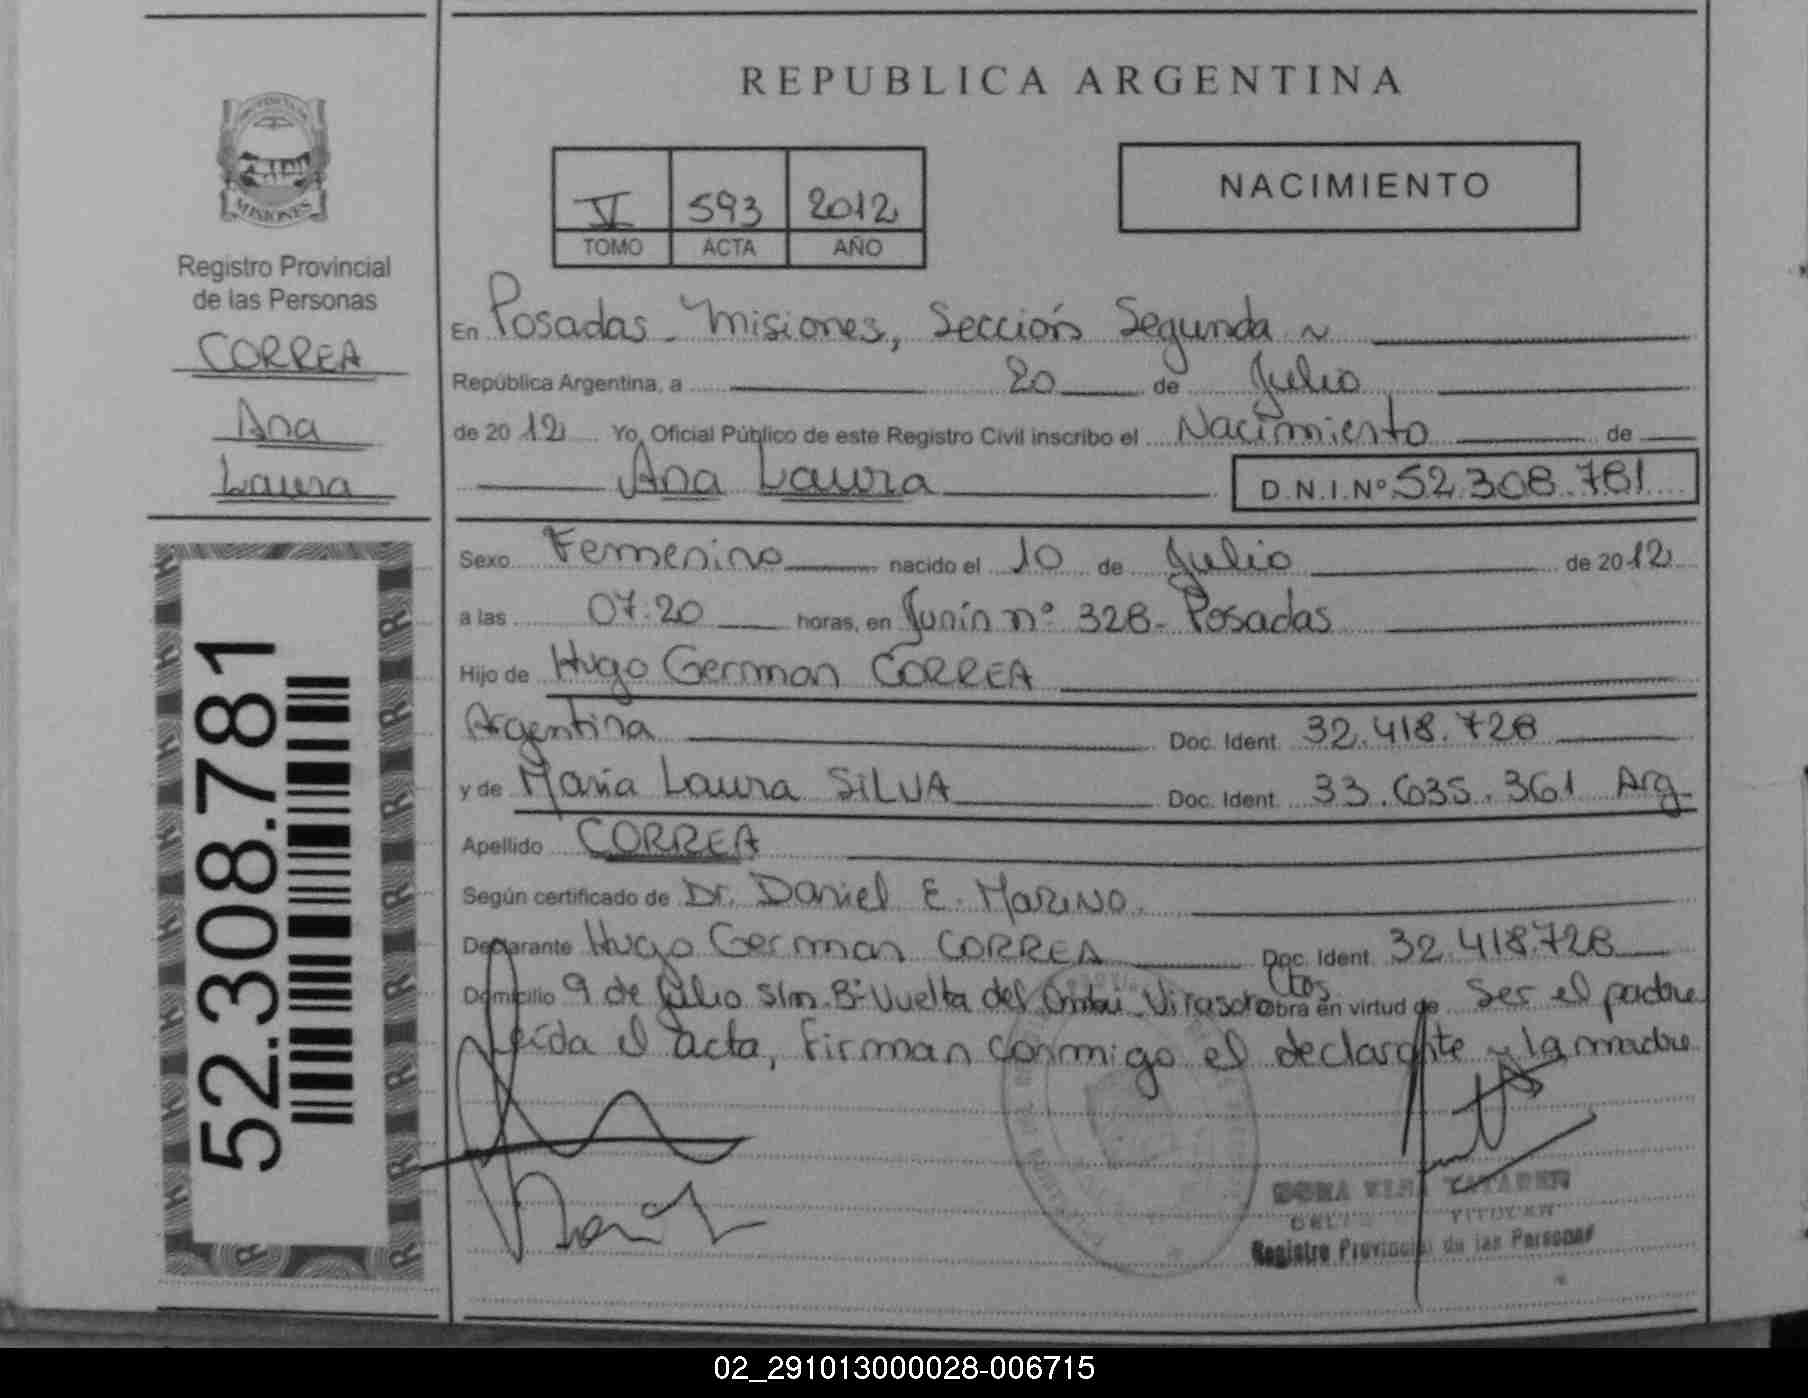 REPUBLICA ARGENTINA
MISIONES
Registro Provincial
de las Personas
CORREA
Ana
Laura
52.308.781
V 593 2012
TOMO ACTA AÑO
NACIMIENTO
En Posadas - Misiones, Sección Segunda ~
República Argentina, a 20 de Julio
de 2012 Yo, Oficial Público de este Registro Civil inscribo el Nacimiento de
Ana Laura D.N.I.Nº 52.308.781
Sexo Femenino nacido el 10 de Julio de 2012
a las 07:20 horas, en Junín nº 328 - Posadas
Hijo de Hugo German CORREA
Argentina Doc. Ident. 32.418.728
y de Maria Laura SILVA Doc. Ident. 33.635.361 Arg.
Apellido CORREA
Según certificado de Dr. Daniel E. MARINO.
Declarante Hugo German CORREA Doc. Ident. 32.418.728
Domicilio 9 de Julio s/n. Bº Vuelta del Ombu - Virasoro Ctes obra en virtud de Ser el padre
Leída el acta, Firman conmigo el declarante y la madre
TITULAR
Registro Provincial de las Personas
02_291013000028-006715